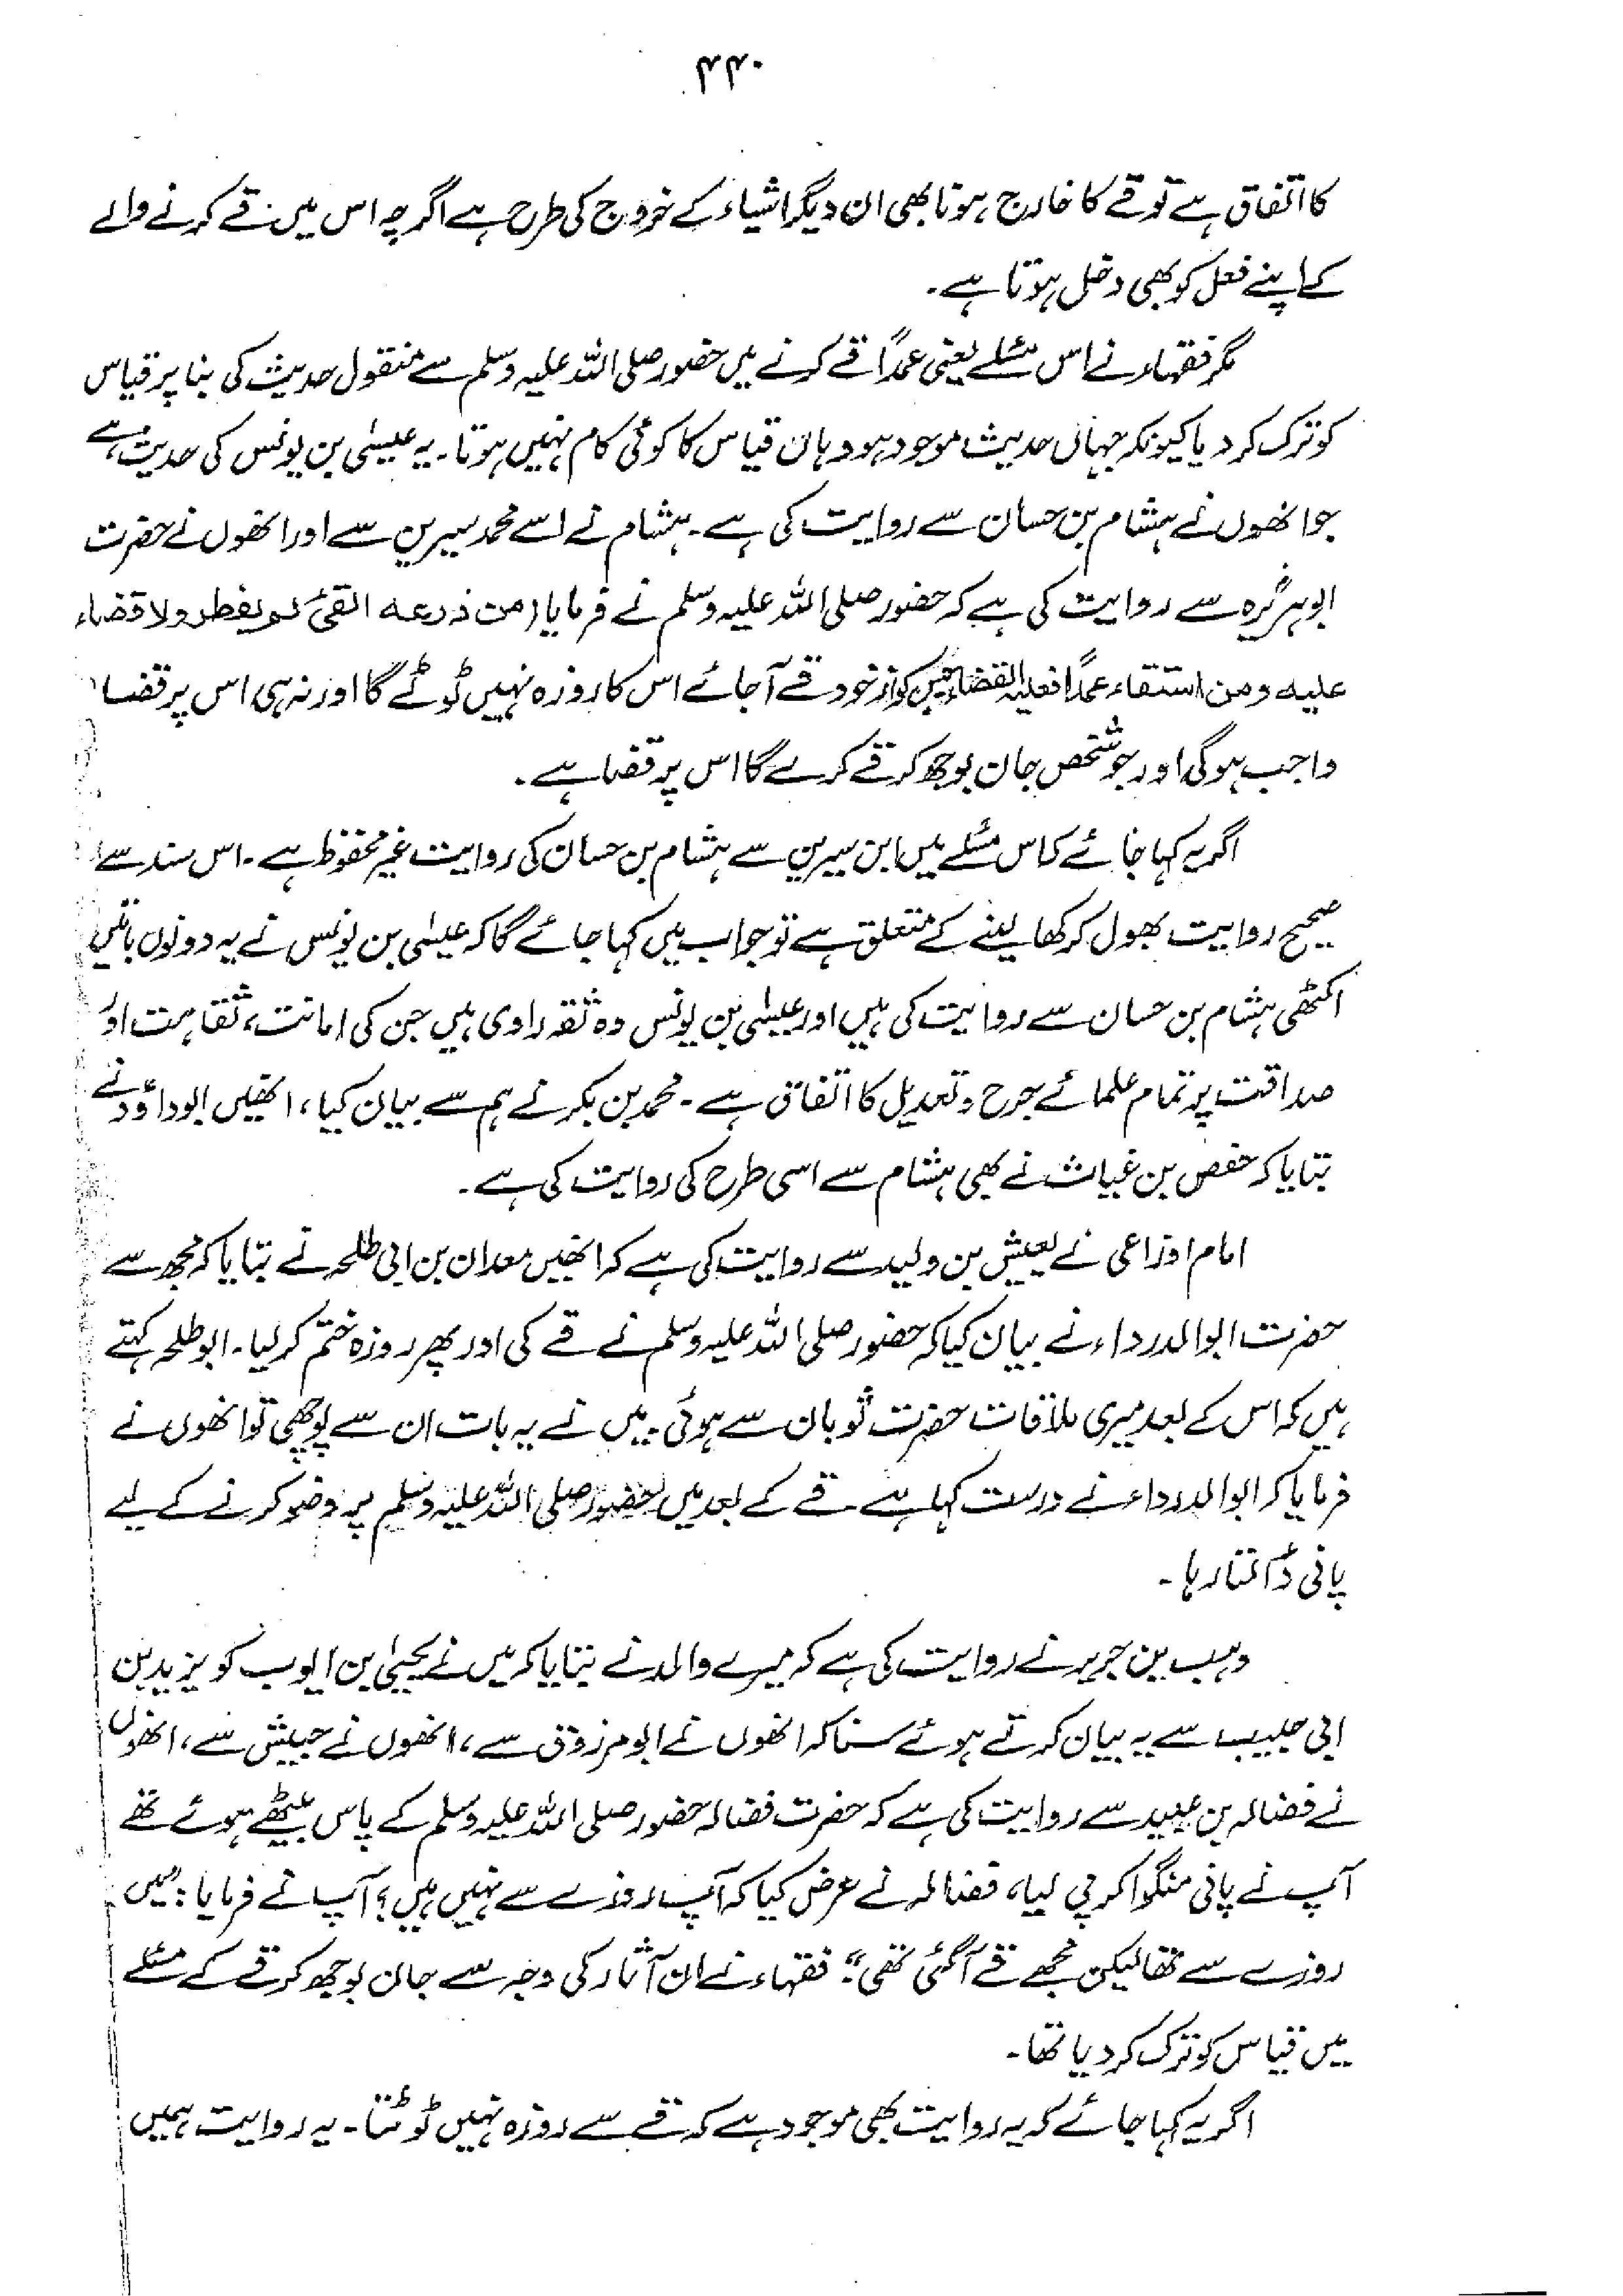 ۴۴۰
کا اتفاق ہے تو قے کا خارج ہونا بھی ان دیگر اشیاء کے خروج کی طرح ہے اگرچہ اس میں قے کرنے والے
کے اپنے فعل کو بھی دخل ہوتا ہے۔
مگر فقہاء نے اس مسئلے یعنی عمداً قے کرنے میں حضور صلی اللہ علیہ وسلم سے منقول حدیث کی بنا پر قیاس
کو ترک کر دیا کیونکہ جہاں حدیث موجود ہو وہاں قیاس کا کوئی کام نہیں ہوتا۔ یہ عیسیٰ بن یونس کی حدیث ہے
جو انھوں نے ہشام بن حسان سے روایت کی ہے۔ ہشام نے اسے محمد سیرین سے اور انھوں نے حضرت
ابوہریرہؓ سے روایت کی ہے کہ حضور صلی اللہ علیہ وسلم نے فرمایا (من ذرعہ القئ لم یفطر ولا قضاء
علیہ ومن استقاء عمداً فعلیہ القضاء جس کو از خود قے آجائے اس کا روزہ نہیں ٹوٹے گا اور نہ ہی اس پر قضا
واجب ہوگی اور جو شخص جان بوجھ کر قے کرے گا اس پر قضا ہے۔
اگر یہ کہا جائے کہ اس مسئلے میں ابن سیرین سے ہشام بن حسان کی روایت غیر محفوظ ہے۔ اس سند سے
صحیح روایت بھول کر کھا لینے کے متعلق ہے تو جواب میں کہا جائے گا کہ عیسیٰ بن یونس نے یہ دونوں باتیں
اکٹھی ہشام بن حسان سے روایت کی ہیں اور عیسیٰ بن یونس وہ ثقہ راوی ہیں جن کی امانت، ثقاہت اور
صداقت پر تمام علمائے جرح و تعدیل کا اتفاق ہے۔ محمد بن بکر نے ہم سے بیان کیا، انھیں ابوداؤد نے
بتایا کہ حفص بن غیاث نے بھی ہشام سے اسی طرح کی روایت کی ہے۔
امام اوزاعی نے یعیش بن ولید سے روایت کی ہے کہ انھیں معدان بن ابی طلحہ نے بتایا کہ مجھ سے
حضرت ابوالدرداء نے بیان کیا کہ حضور صلی اللہ علیہ وسلم نے قے کی اور پھر روزہ ختم کر لیا۔ ابوطلحہ کہتے
ہیں کہ اس کے بعد میری ملاقات حضرت ثوبان سے ہوئی۔ میں نے یہ بات ان سے پوچھی تو انھوں نے
فرمایا کہ ابوالدرداء نے درست کہا ہے قے کے بعد میں حضور صلی اللہ علیہ وسلم پر وضو کرنے کے لیے
پانی ڈالتا رہا۔
وہب بن جریر نے روایت کی ہے کہ میرے والد نے بتایا کہ میں نے یحییٰ بن ایوب کو یزید بن
ابی حبیب سے یہ بیان کرتے ہوئے سنا کہ انھوں نے ابو مرزوق سے، انھوں نے حبیش سے، انھوں
نے فضالہ بن عبید سے روایت کی ہے کہ حضرت فضالہ حضور صلی اللہ علیہ وسلم کے پاس بیٹھے ہوئے تھے
آپ نے پانی منگوا کر پی لیا، فضالہ نے عرض کیا کہ آپ روزے سے نہیں ہیں؟ آپ نے فرمایا: "میں
روزے سے تھا لیکن مجھے قے آگئی تھی"۔ فقہاء نے ان آثار کی وجہ سے جان بوجھ کر قے کے مسئلے
میں قیاس کو ترک کر دیا تھا۔
اگر یہ کہا جائے کہ یہ روایت بھی موجود ہے کہ قے سے روزہ نہیں ٹوٹتا۔ یہ روایت ہمیں